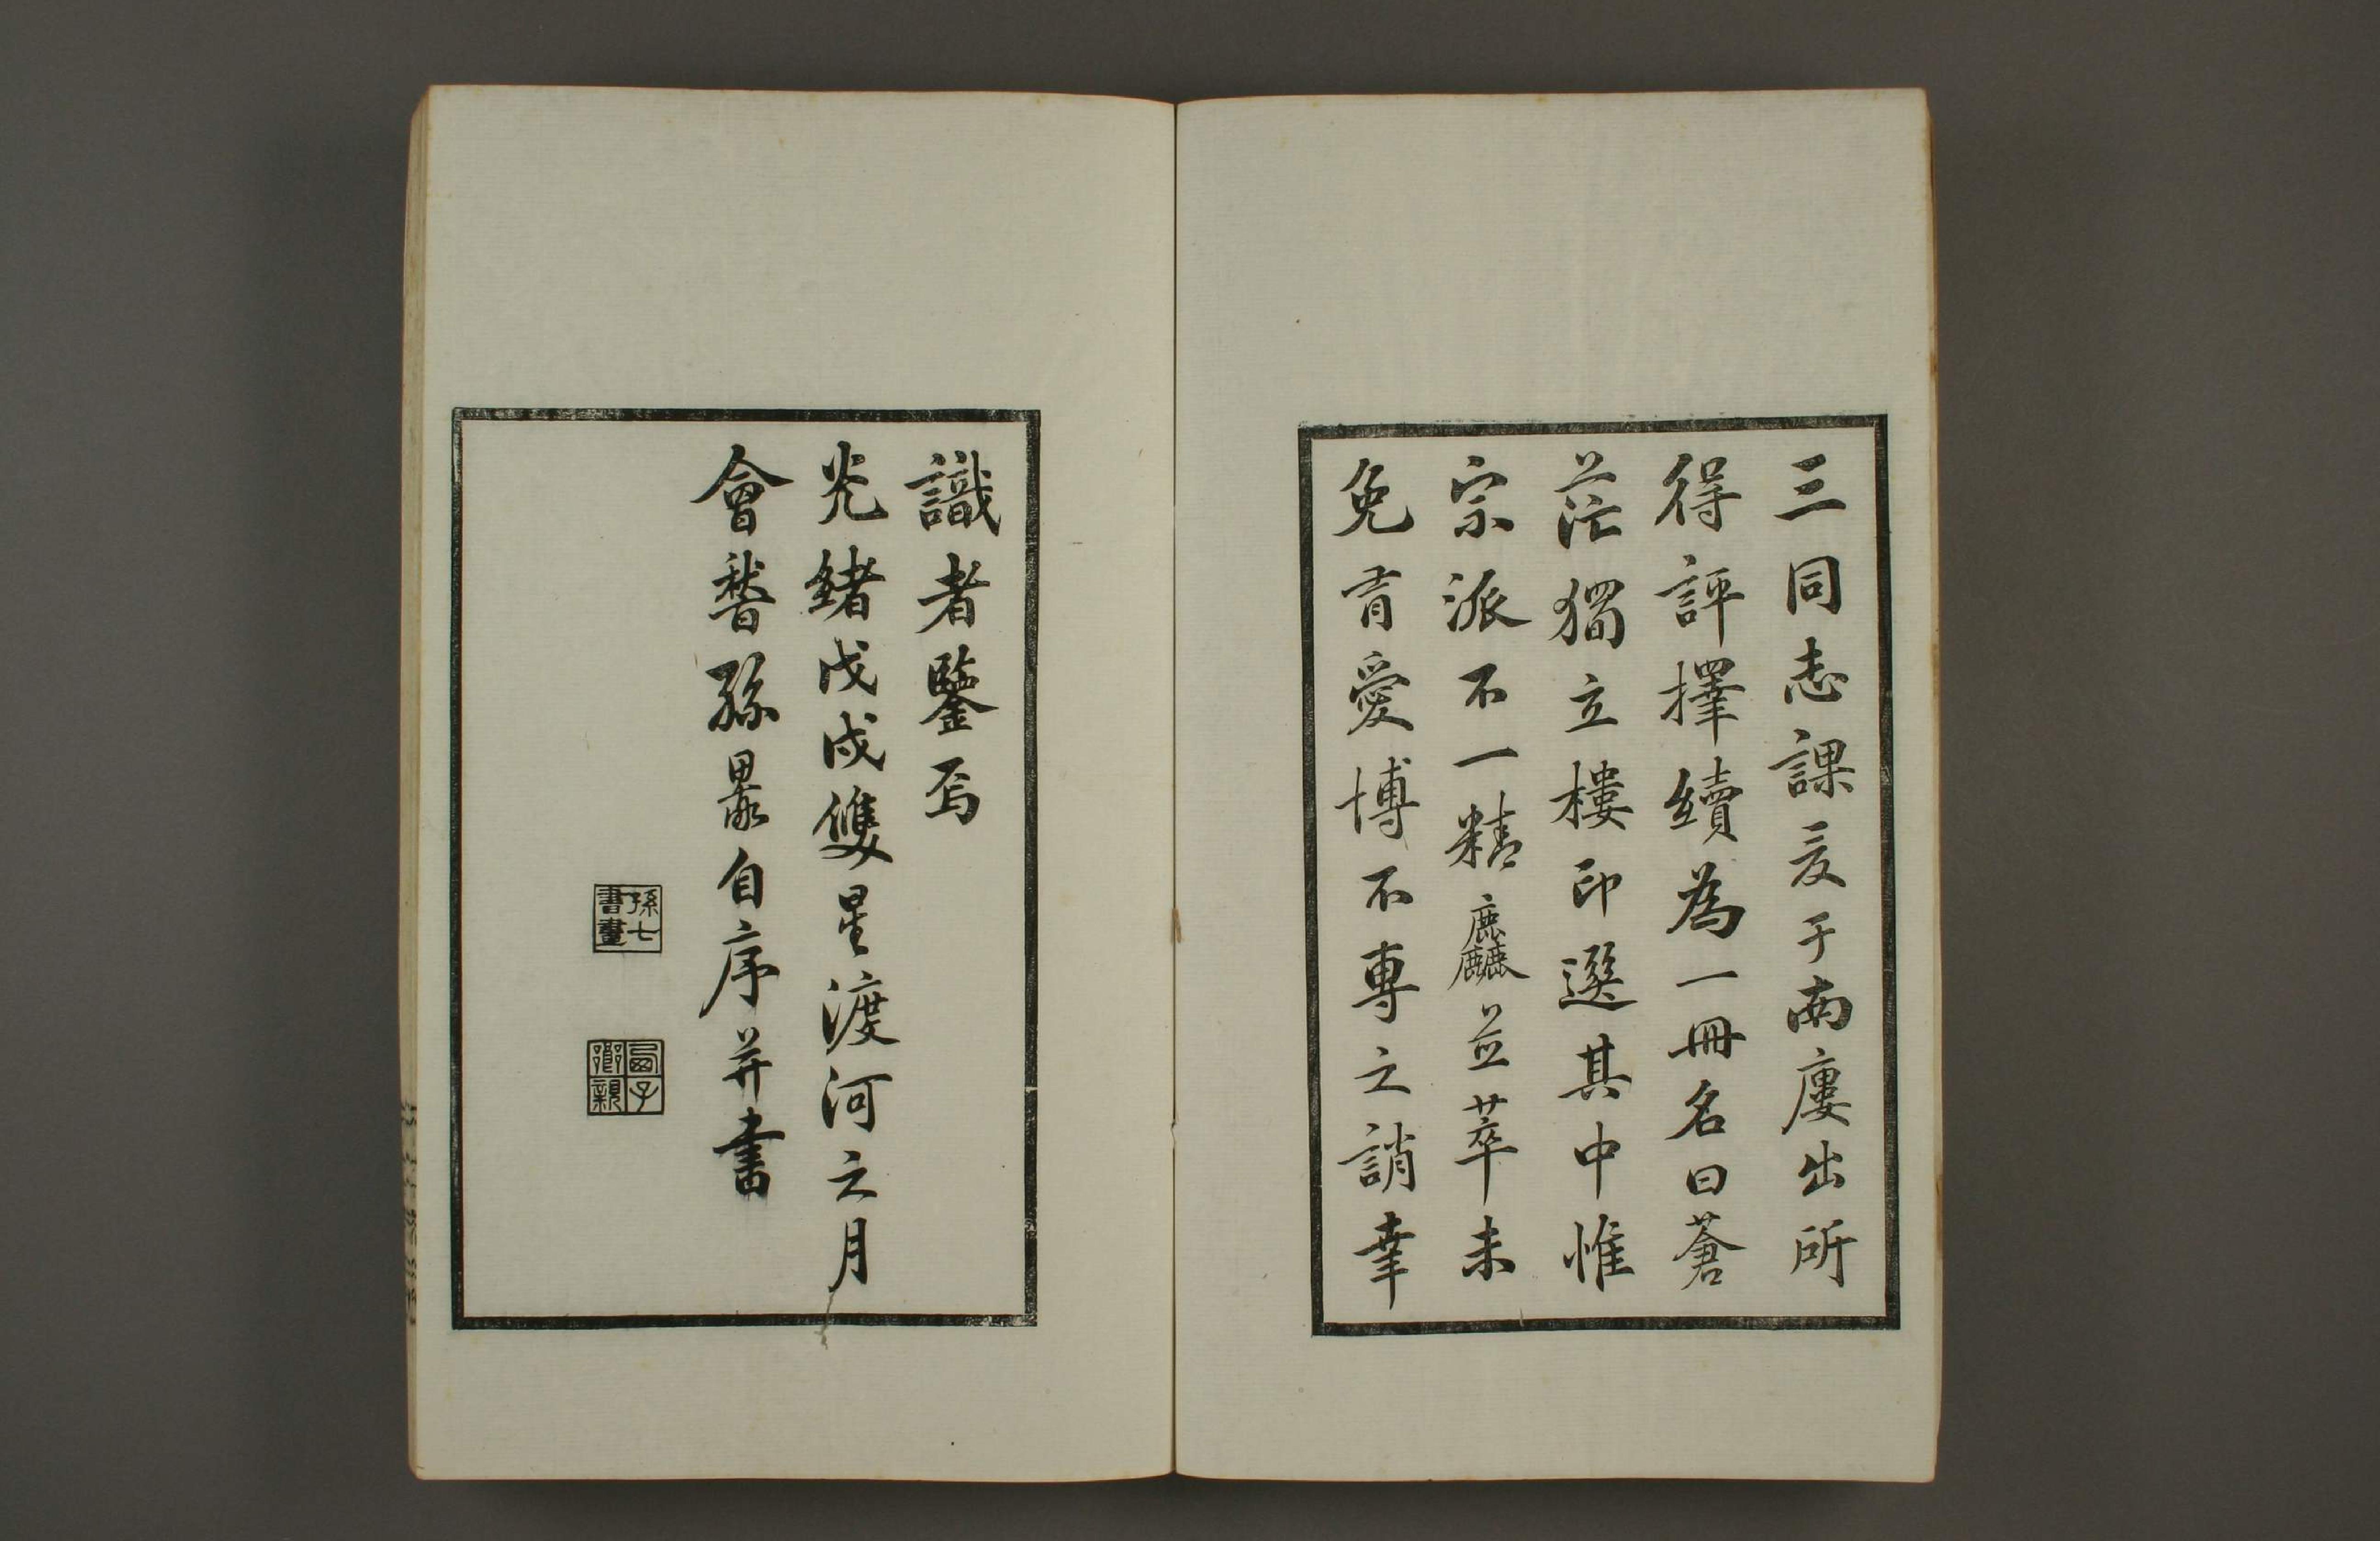 三同志課爰于兩廔出所
得評擇續為一冊名曰蒼
茫獨立樓印選其中惟
宗派不一精麤並萃未
免有愛博不專之誚幸
識者鑒焉
光緒戊戌雙星渡河之月
會稽孫自序并書
孫七書畫
西子鄉親